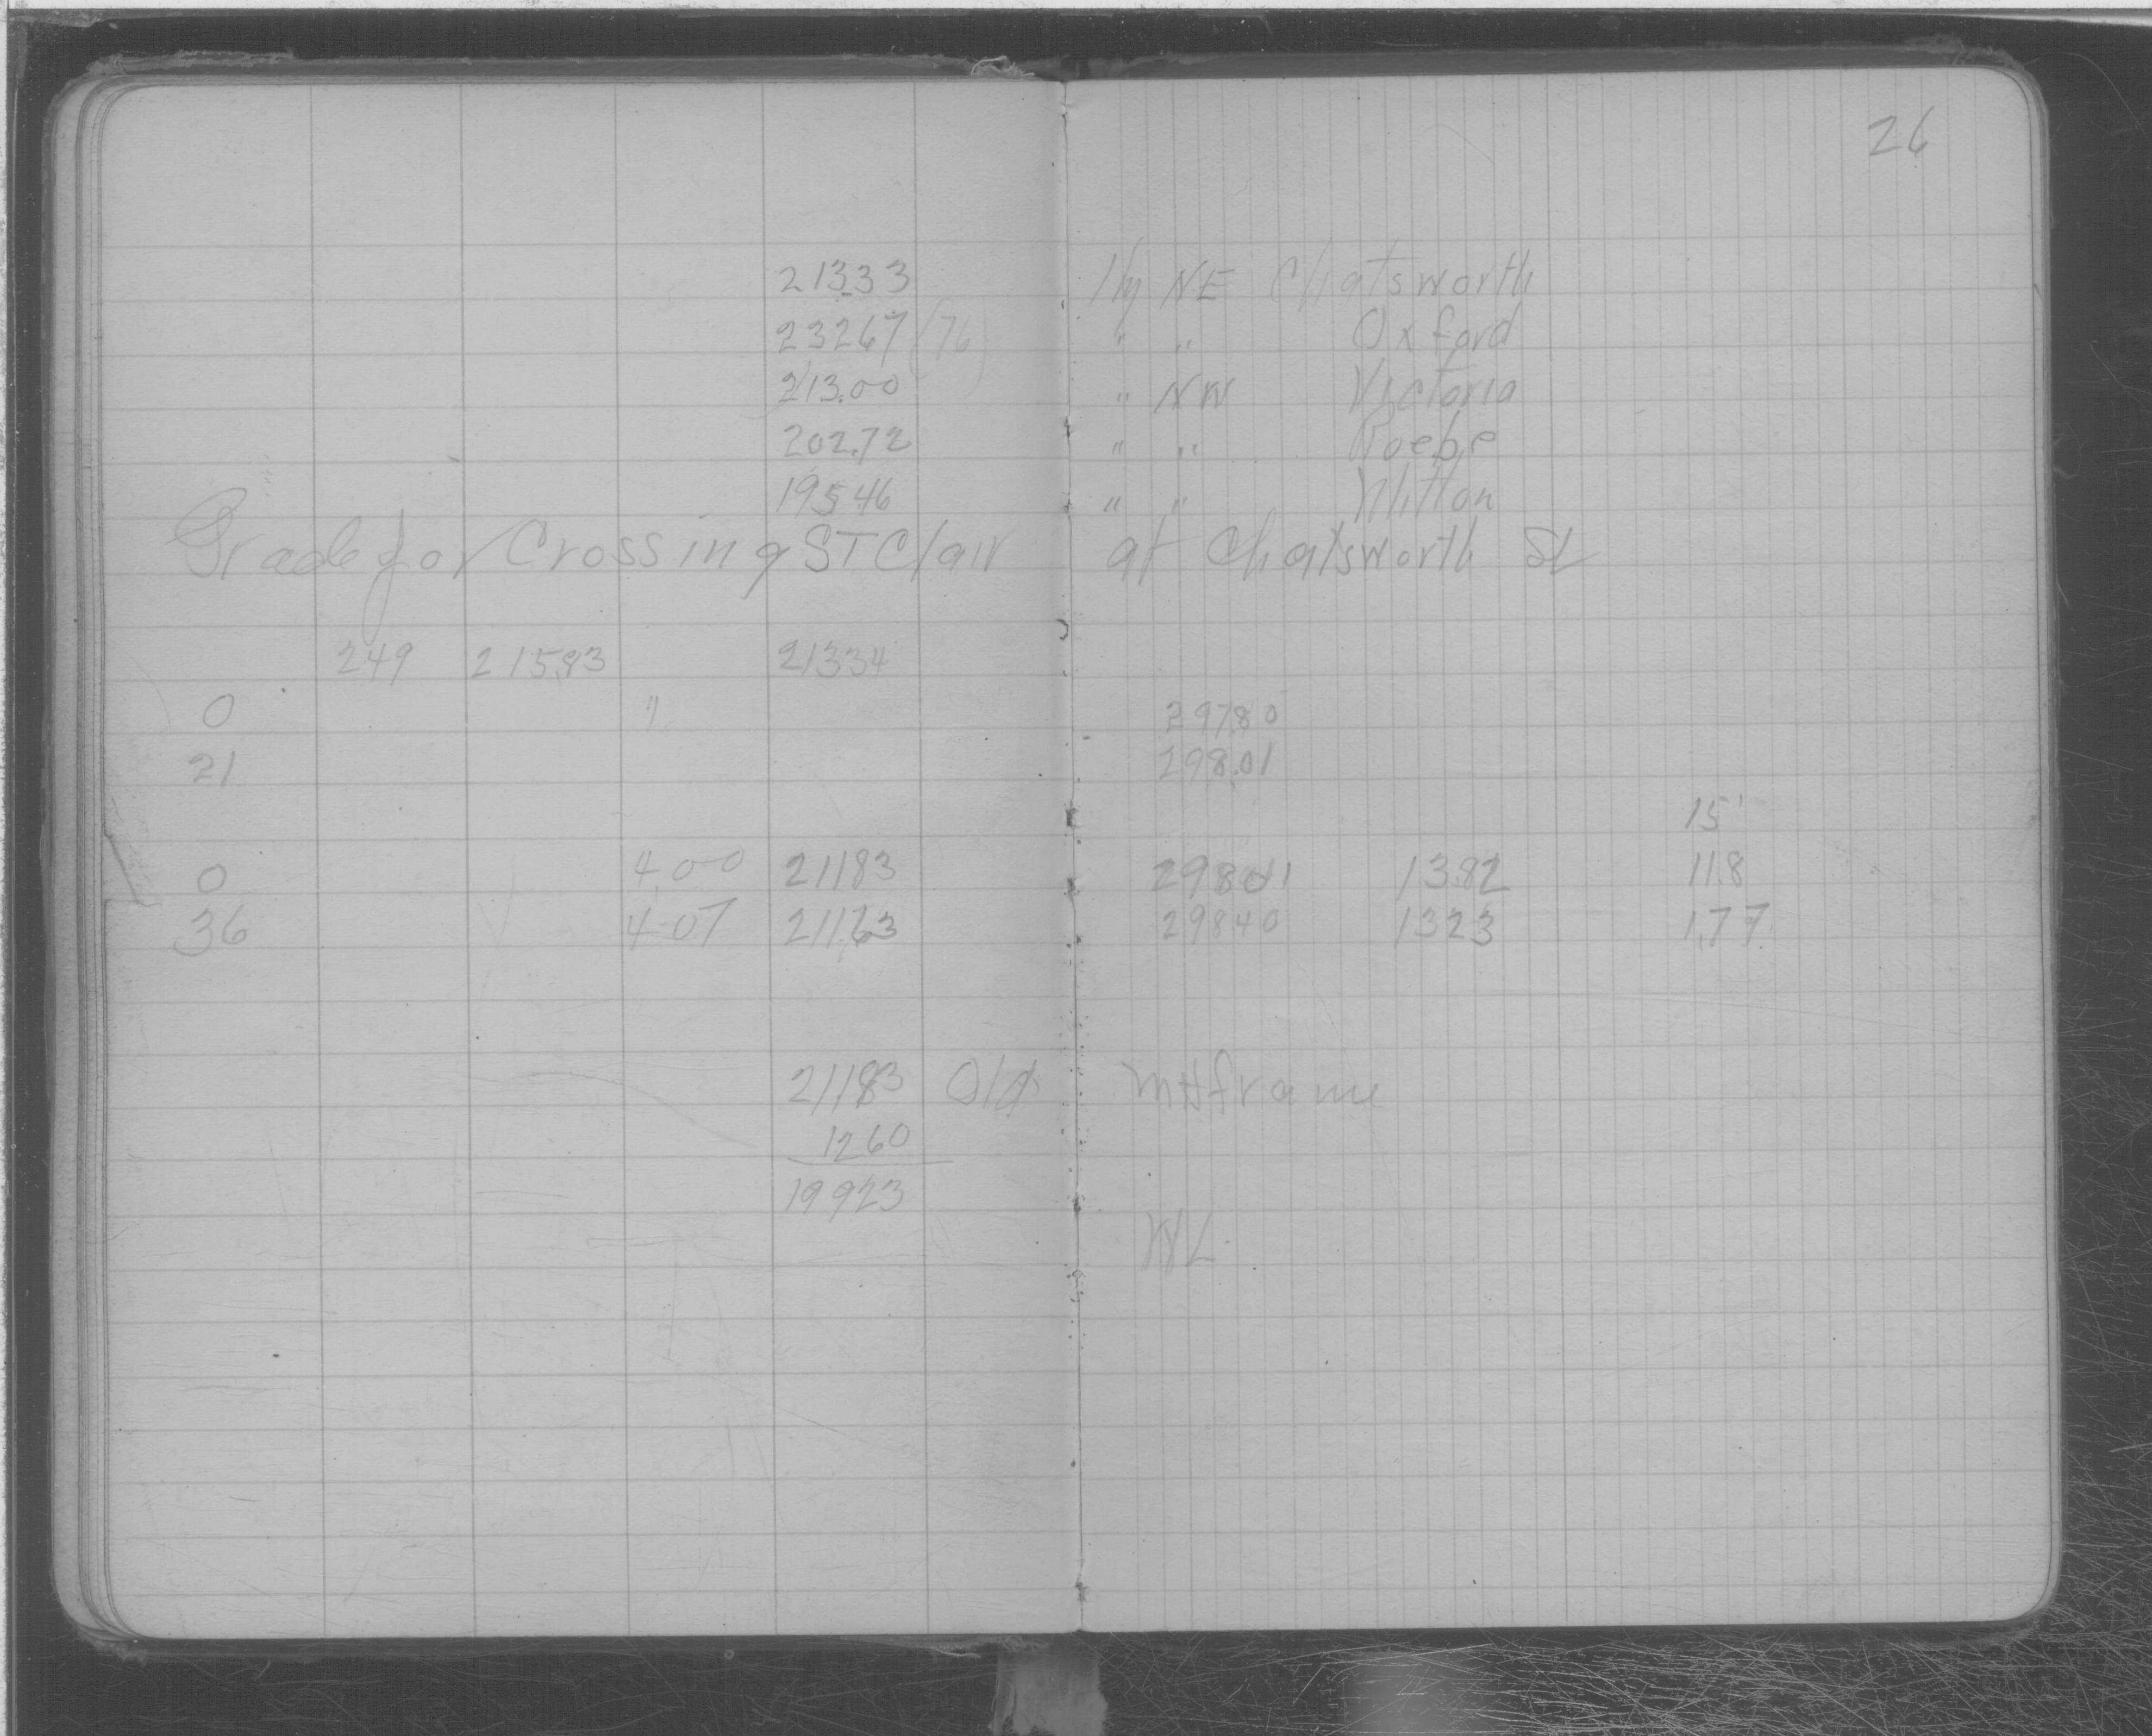 26
21333 Hy NE Chatsworth
23267 (76) " " Oxford
213.00 " NW Victoria
202.72 " "
19546 " " Milton
Grade for Crossing ST Clair at Chatsworth St
249 21583 21334
0 " 29780
21 298.01
15'
0 4.00 21183 29801 1382 11.8
36 4.07 21163 29840 1323 1.77
21183 Old MH frame
1260
19923
WL